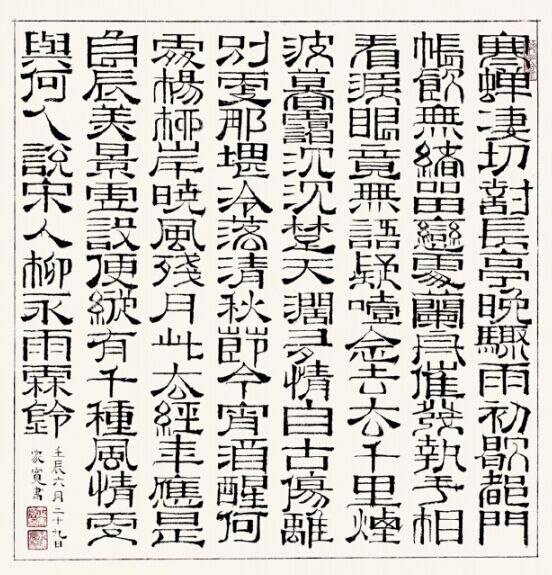 寒蝉凄切對長亭晚驟雨初歇都門
帳飲無緒留戀處蘭舟催發執手相
看淚眼竟無語凝噎念去去千里煙
波暮靄沉沉楚天闊多情自古傷離
別更那堪冷落清秋節今宵酒醒何
處楊柳岸曉風殘月此去經年應是
良辰美景虛設便縱有千種風情更
與何人說宋人柳永雨霖鈴
壬辰六月二十九日
家寶書